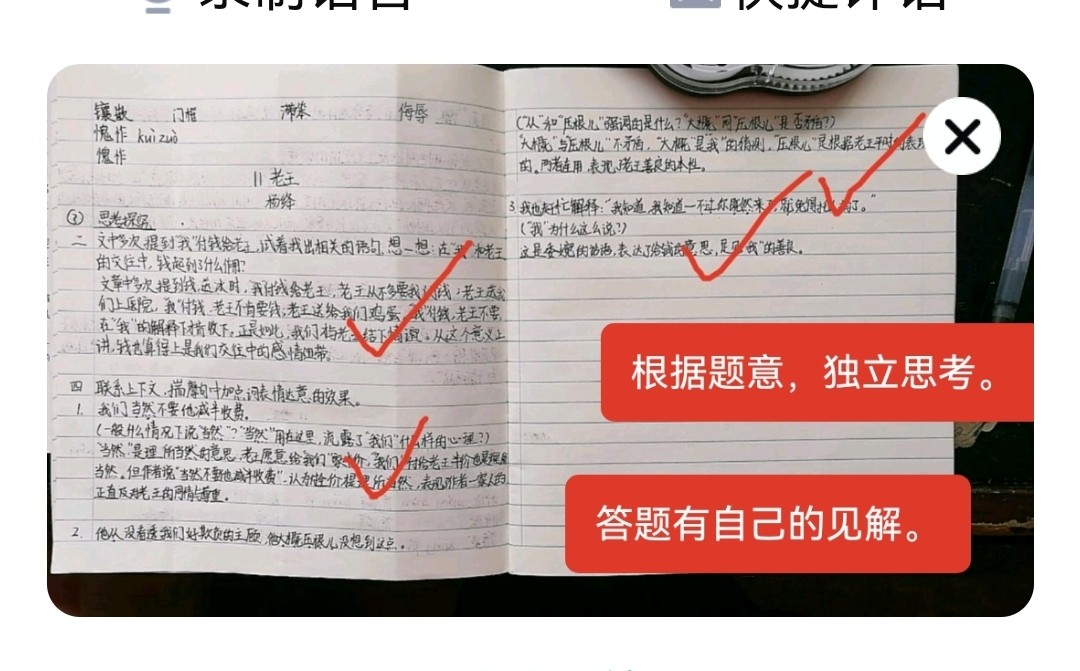 录制语音
快捷评语
镶嵌 门框 滞笨 侮辱
愧怍 kuì zuò
愧怍
11 老王
杨绛
③ 思考探究
二 文中多次提到"我"付钱给老王,试着找出相关的语句,想一想:在"我"和老王
的交往中,钱起到了什么作用?
文章中多次提到钱,送冰时,我付钱给老王,老王从不多要我们的钱;老王送我
们上医院,我付钱,老王不肯要钱;老王送给我们鸡蛋,我付钱,老王不要,
在"我"的解释下才收下。正是如此,我们和老王结下情谊。从这个意义上
讲,钱也算得上是我们交往中的感情纽带。
四 联系上下文,揣摩句中加点词表情达意的效果。
1. 我们当然不要他减半收费。
(一般什么情况下说"当然"?"当然"用在这里,流露了"我们"什么样的心理?)
"当然"是理所当然的意思,老王愿意给我们
当然。但作者说"当然不要他减半收费",认为
正直及对老王的同情与尊重。
2. 他从没看透我们是好欺负的主顾,他大概压根儿没想到这点。
("从"和"压根儿"强调的是什么?"大概"同"压根儿"是否矛盾?)
"大概"与"压根儿"不矛盾,"大概"是"我"的猜测,"压根儿"是根据老王平时的表现
的。两者连用,表现老王善良的本性。
3 我也赶忙解释:"我知道,我知道——不过你既然来了,就免得托人捎了。"
("我"为什么这么说?)
这是委婉的的话,表达了给钱的意思,足见"我"的善良。
根据题意,独立思考。
答题有自己的见解。